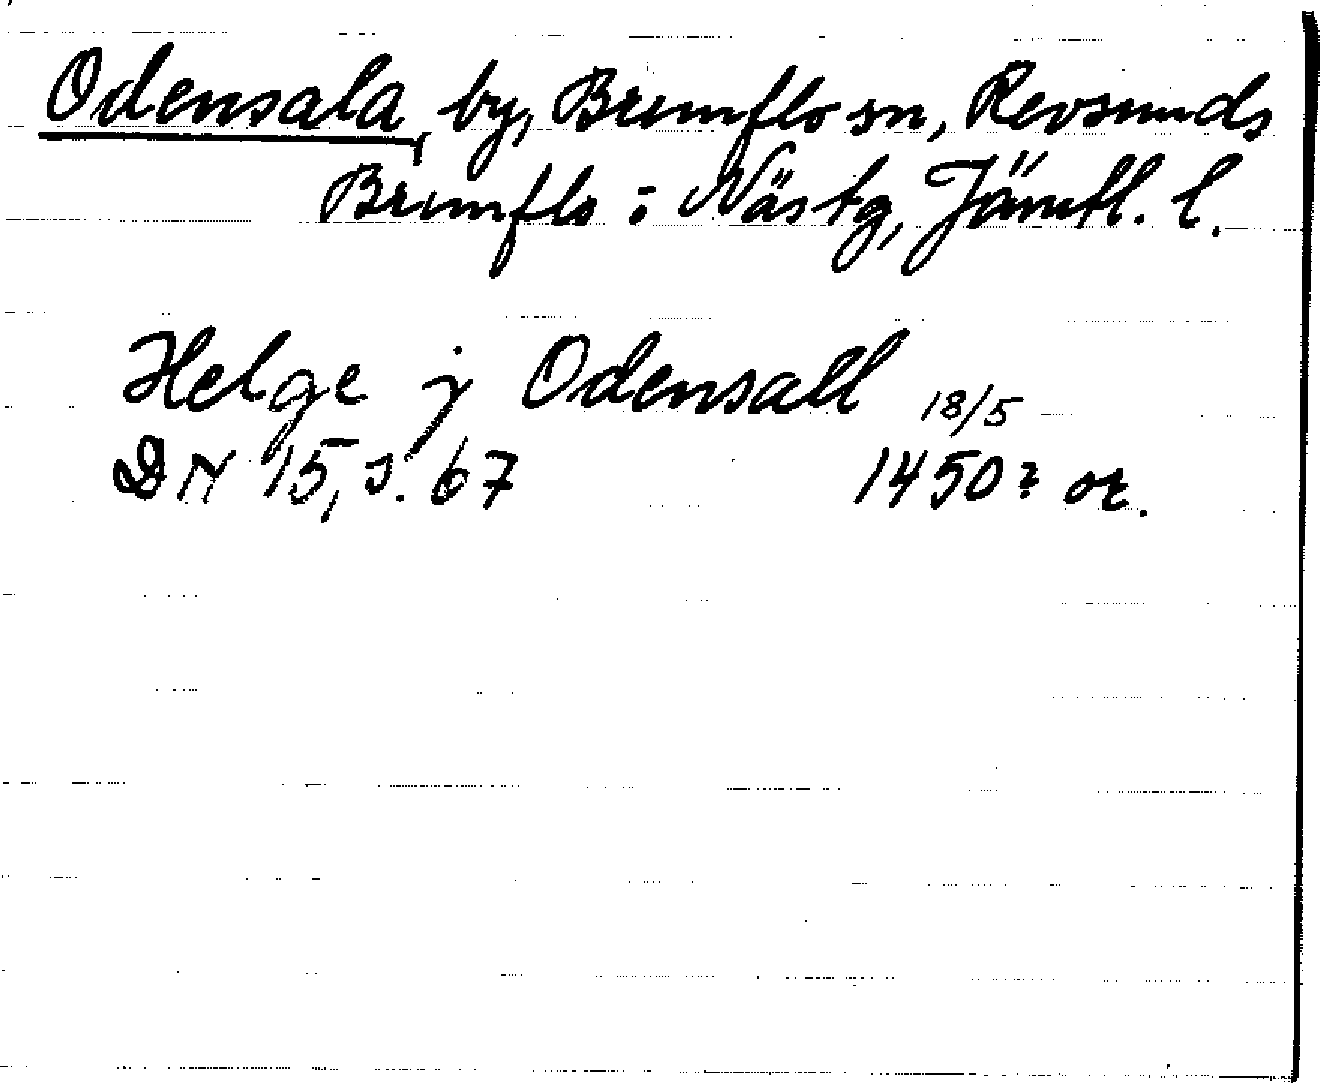 Odensala, by, Brunflo sn, Revsunds
Brunflo o Näs tg, Jämtl. l.
Helge j Odensall 18/5
DN 15, s. 67 1450? or.